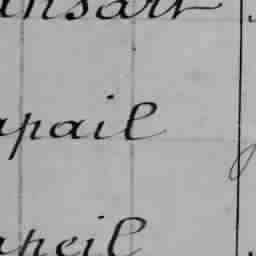 ansart
apail
apeil